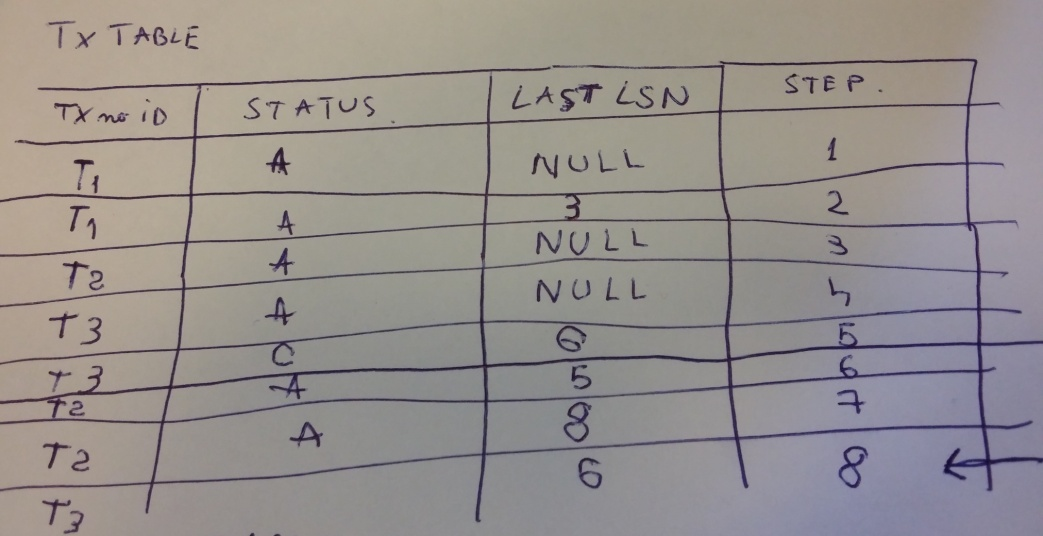 TX TABLE
TX no iD STATUS. LAST LSN STEP.
T1 A NULL 1
T1 A 3 2
T2 A NULL 3
T3 A NULL 4
T3 C 6 5
T2 A 5 6
T2 A 8 7
T3 6 8 ←